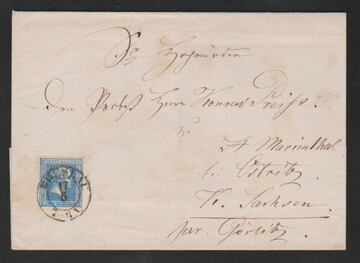 Sr Hochwürden
dem Probst Herrn Konrad Preiss.
in
St Marienthal
bei Ostritz
K. Sachsen
per. Görlitz